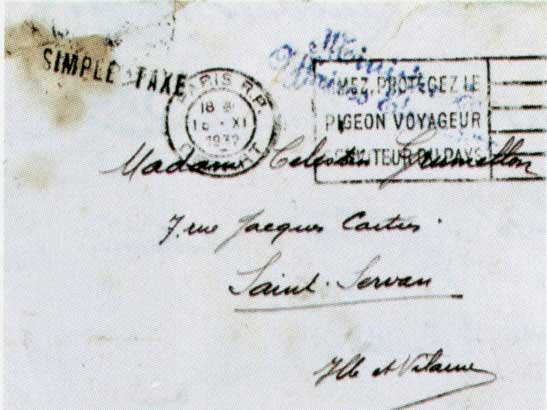 SIMPLE TAXE
PARIS R.P.
18
16 - XI
1932
MEZ, PROTEGEZ LE
PIGEON VOYAGEUR
DU PAYS
Madame Celestin
7. rue Jacques Cartier.
Saint-Servan
Ille et Vilaine